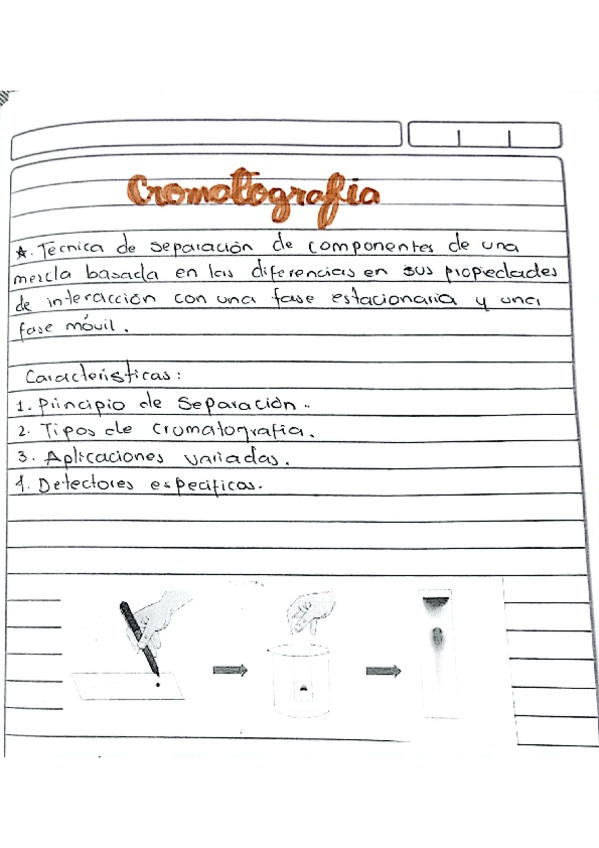 Cromatografia
★. Técnica de separación de componentes de una
mezcla basada en las diferencias en sus propiedades
de interacción con una fase estacionaria y una
fase móvil.
Caracteristicas:
1. Principio de Separación.
2. Tipos de cromatografia.
3. Aplicaciones variadas.
4. Detectores especificos.